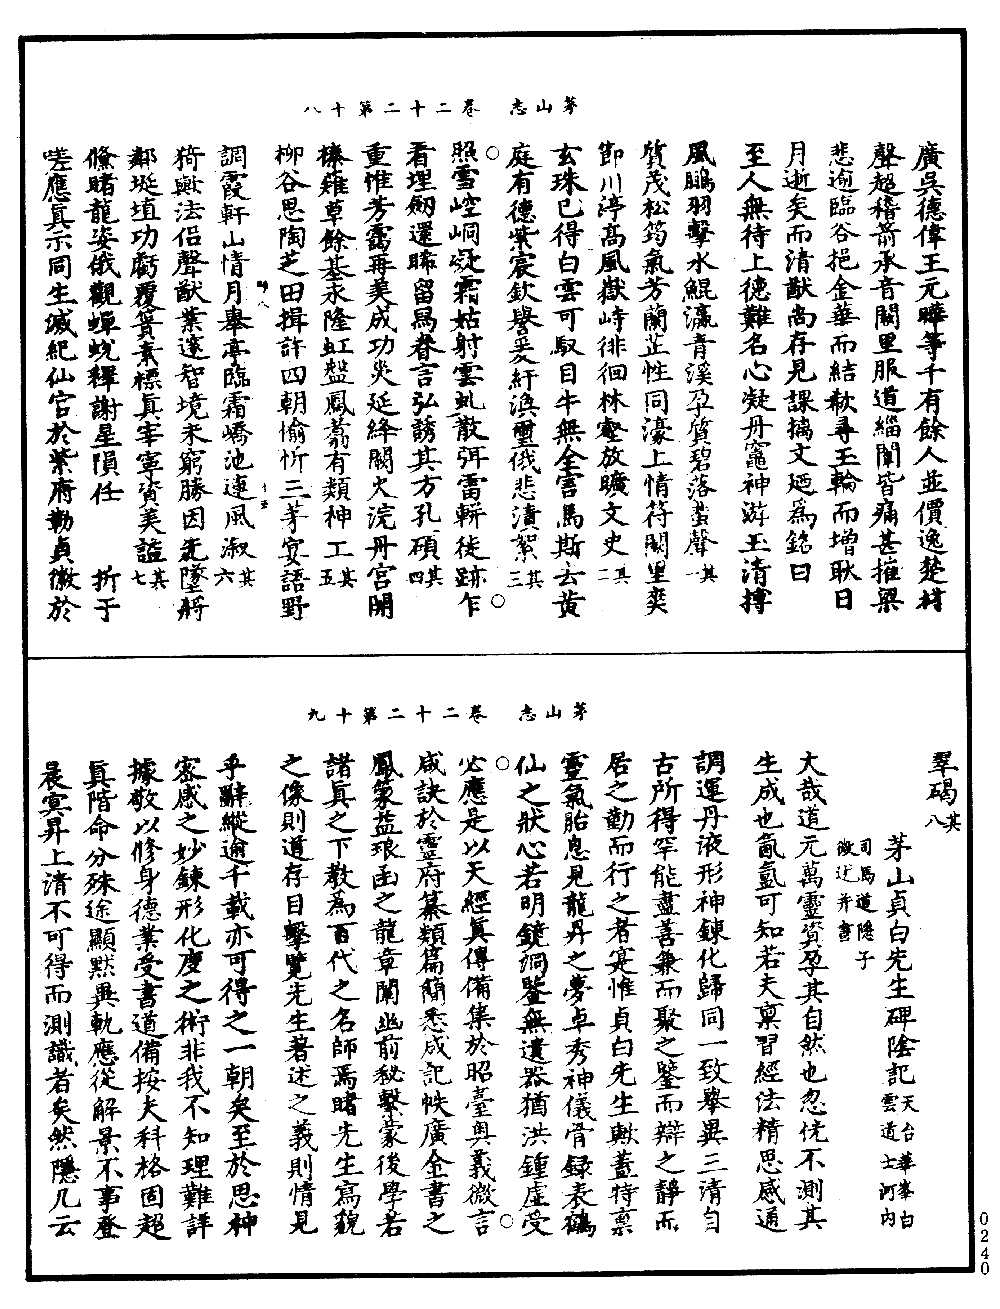 茅山志　卷二十二第十八
廣吳德偉王元曄等千有餘人並價逸楚材
聲超稽箭承音闕里服道緇闈皆痛甚摧梁
悲逾臨谷挹金華而結欷尋玉輪而增耿日
月逝矣而清猷尚存見課摛文廼為銘曰
至人無待上德難名心凝丹竈神游玉清摶
風鵬羽擊水鯤瀛青溪孕質碧落蜚聲其一
質茂松筠氣芳蘭芷性同濠上情符闕里奕
節川渟高風嶽峙徘徊林壑放曠文史其二
玄珠已得白雲可馭目牛無全害馬斯去黃
庭有德紫宸欽譽爰紆浜璽俄悲漬絮其三
照雪崆峒凝霜姑射雲虬散弭雷軿徒跡乍
看埋劒還睎留舄眷言弘誘其方孔碩其四
重惟芳靄再美成功炎延絳闕火浣丹宮開
榛薙草餘基永隆虹盤鳳翥有類神工其五
柳谷思陶芝田揖許四朝愉忻三茅宴語野
調霞軒山情月舉亭臨霜嶠池連風溆其六
猗歟法侣聲猷業邃智境未窮勝因旡墜將
鄰埏埴功虧覆簣素標真宰寧資美謚其七
儵睹龍姿俄觀蟬蛻釋謝星隕任　折于
嗟應真示同生滅紀仙官於紫府勒貞徽於
茅山志　卷二十二第十九
翠碣其八
茅山貞白先生碑陰記天台華峯白雲道士河內司馬道隱子微述并書
大哉道元萬靈資孕其自然也忽恍不測其
生成也氤氳可知若夫稟習經法精思感通
調運丹液形神鍊化歸同一致舉異三清自
古所得罕能盡善兼而聚之鑒而辯之靜而
居之勤而行之者寔惟貞白先生歟蓋特稟
靈氣胎息見龍昇之夢卓秀神儀骨録表鶴
仙之狀心若明鏡洞鑒無遺器猶洪鍾虛受
必應是以天經真傳備集於昭臺奧義微言
咸訣於靈府纂類篇簡悉成記帙廣金書之
鳳篆益琅函之龍章闡幽前秘擊蒙後學若
諸真之下教為百代之名師焉睹先生寫貌
之像則道存目擊覽先生著述之義則情見
乎辭縱逾千載亦可得之一朝矣至於思神
密感之妙鍊形化度之術非我不知理難詳
據敬以修身德業受書道備按夫科格固超
真階命分殊途顯默異軌應從解景不事登
晨冥昇上清不可得而測識者矣然隱几云
0240